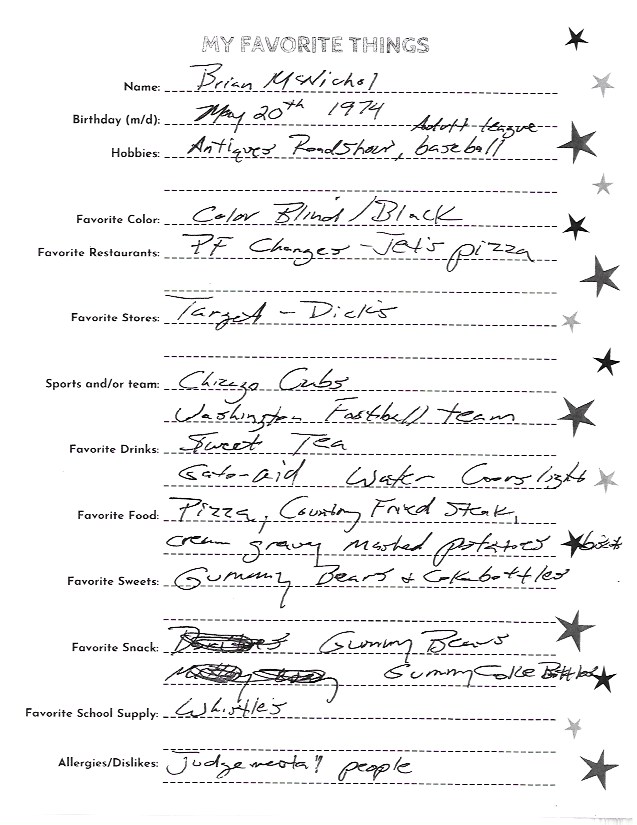 MY FAVORITE THINGS
Name: Brian McNichol
Birthday (m/d): May 20th 1974
Adult league
Hobbies: Antiques Roadshow, baseball
Favorite Color: Color Blind/Black
Favorite Restaurants: PF Changes - Jet's pizza
Favorite Stores: Target - Dick's
Sports and/or team: Chicago Cubs
Washington Football team
Favorite Drinks: Sweet Tea
Gator-aid Water Coors light
Favorite Food: Pizza, Country Fried Steak,
cream gravy mashed potatoes
Favorite Sweets: Gummy Bears & Coke bottles
Favorite Snack: Gummy Bears
Gummy Coke Bottles
Favorite School Supply: Whistles
Allergies/Dislikes: Judgemental people